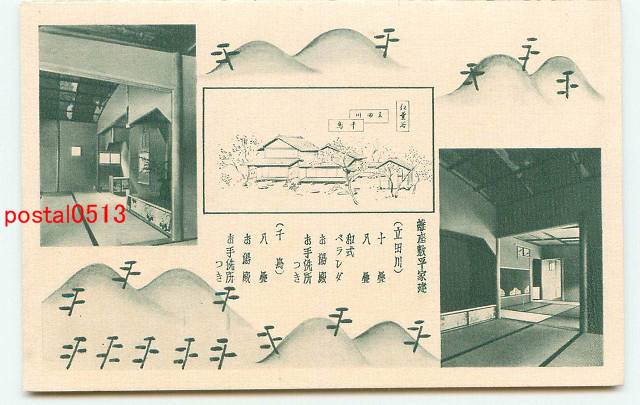 紅葉谷
立田川
千鳥
離座敷平家建
(立田川)
十疊
八疊
和式
ベランダ
お湯殿
お手洗所
つき
(千鳥)
八疊
お湯殿
お手洗所
つき
postal0513